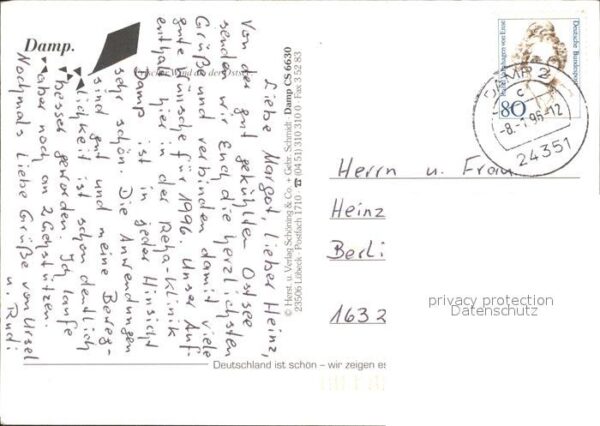 Damp.
Frischer Wind an der Ostsee
Liebe Margot, Lieber Heinz,
Von der gut gekühlten Ostsee
senden wir Euch die herzlichsten
Grüße und verbinden damit viele
gute Wünsche für 1996. Unser Auf-
enthalt hier in der Reha-Klinik
Damp ist in jeder Hinsicht
sehr schön. Die Anwendungen
sind gut und meine Beweg-
lichkeit ist schon deutlich
besser geworden. Ich laufe
aber noch an 2 Gehstützen.
Nochmals Liebe Grüße von Ursel
u. Rudi
© Herst. u. Verlag Schöning & Co. + Gebr. Schmidt Damp CS 6630
23506 Lübeck · Postfach 1710 · ☎ (04 51) 310 310 0 · Fax 3 52 83
Deutschland ist schön – wir zeigen es
Deutsche Bundespost
80
DAMP 2
c
-8.-1.96-12
24351
Herrn u. Frau
Heinz
Berli
1632
privacy protection
Datenschutz